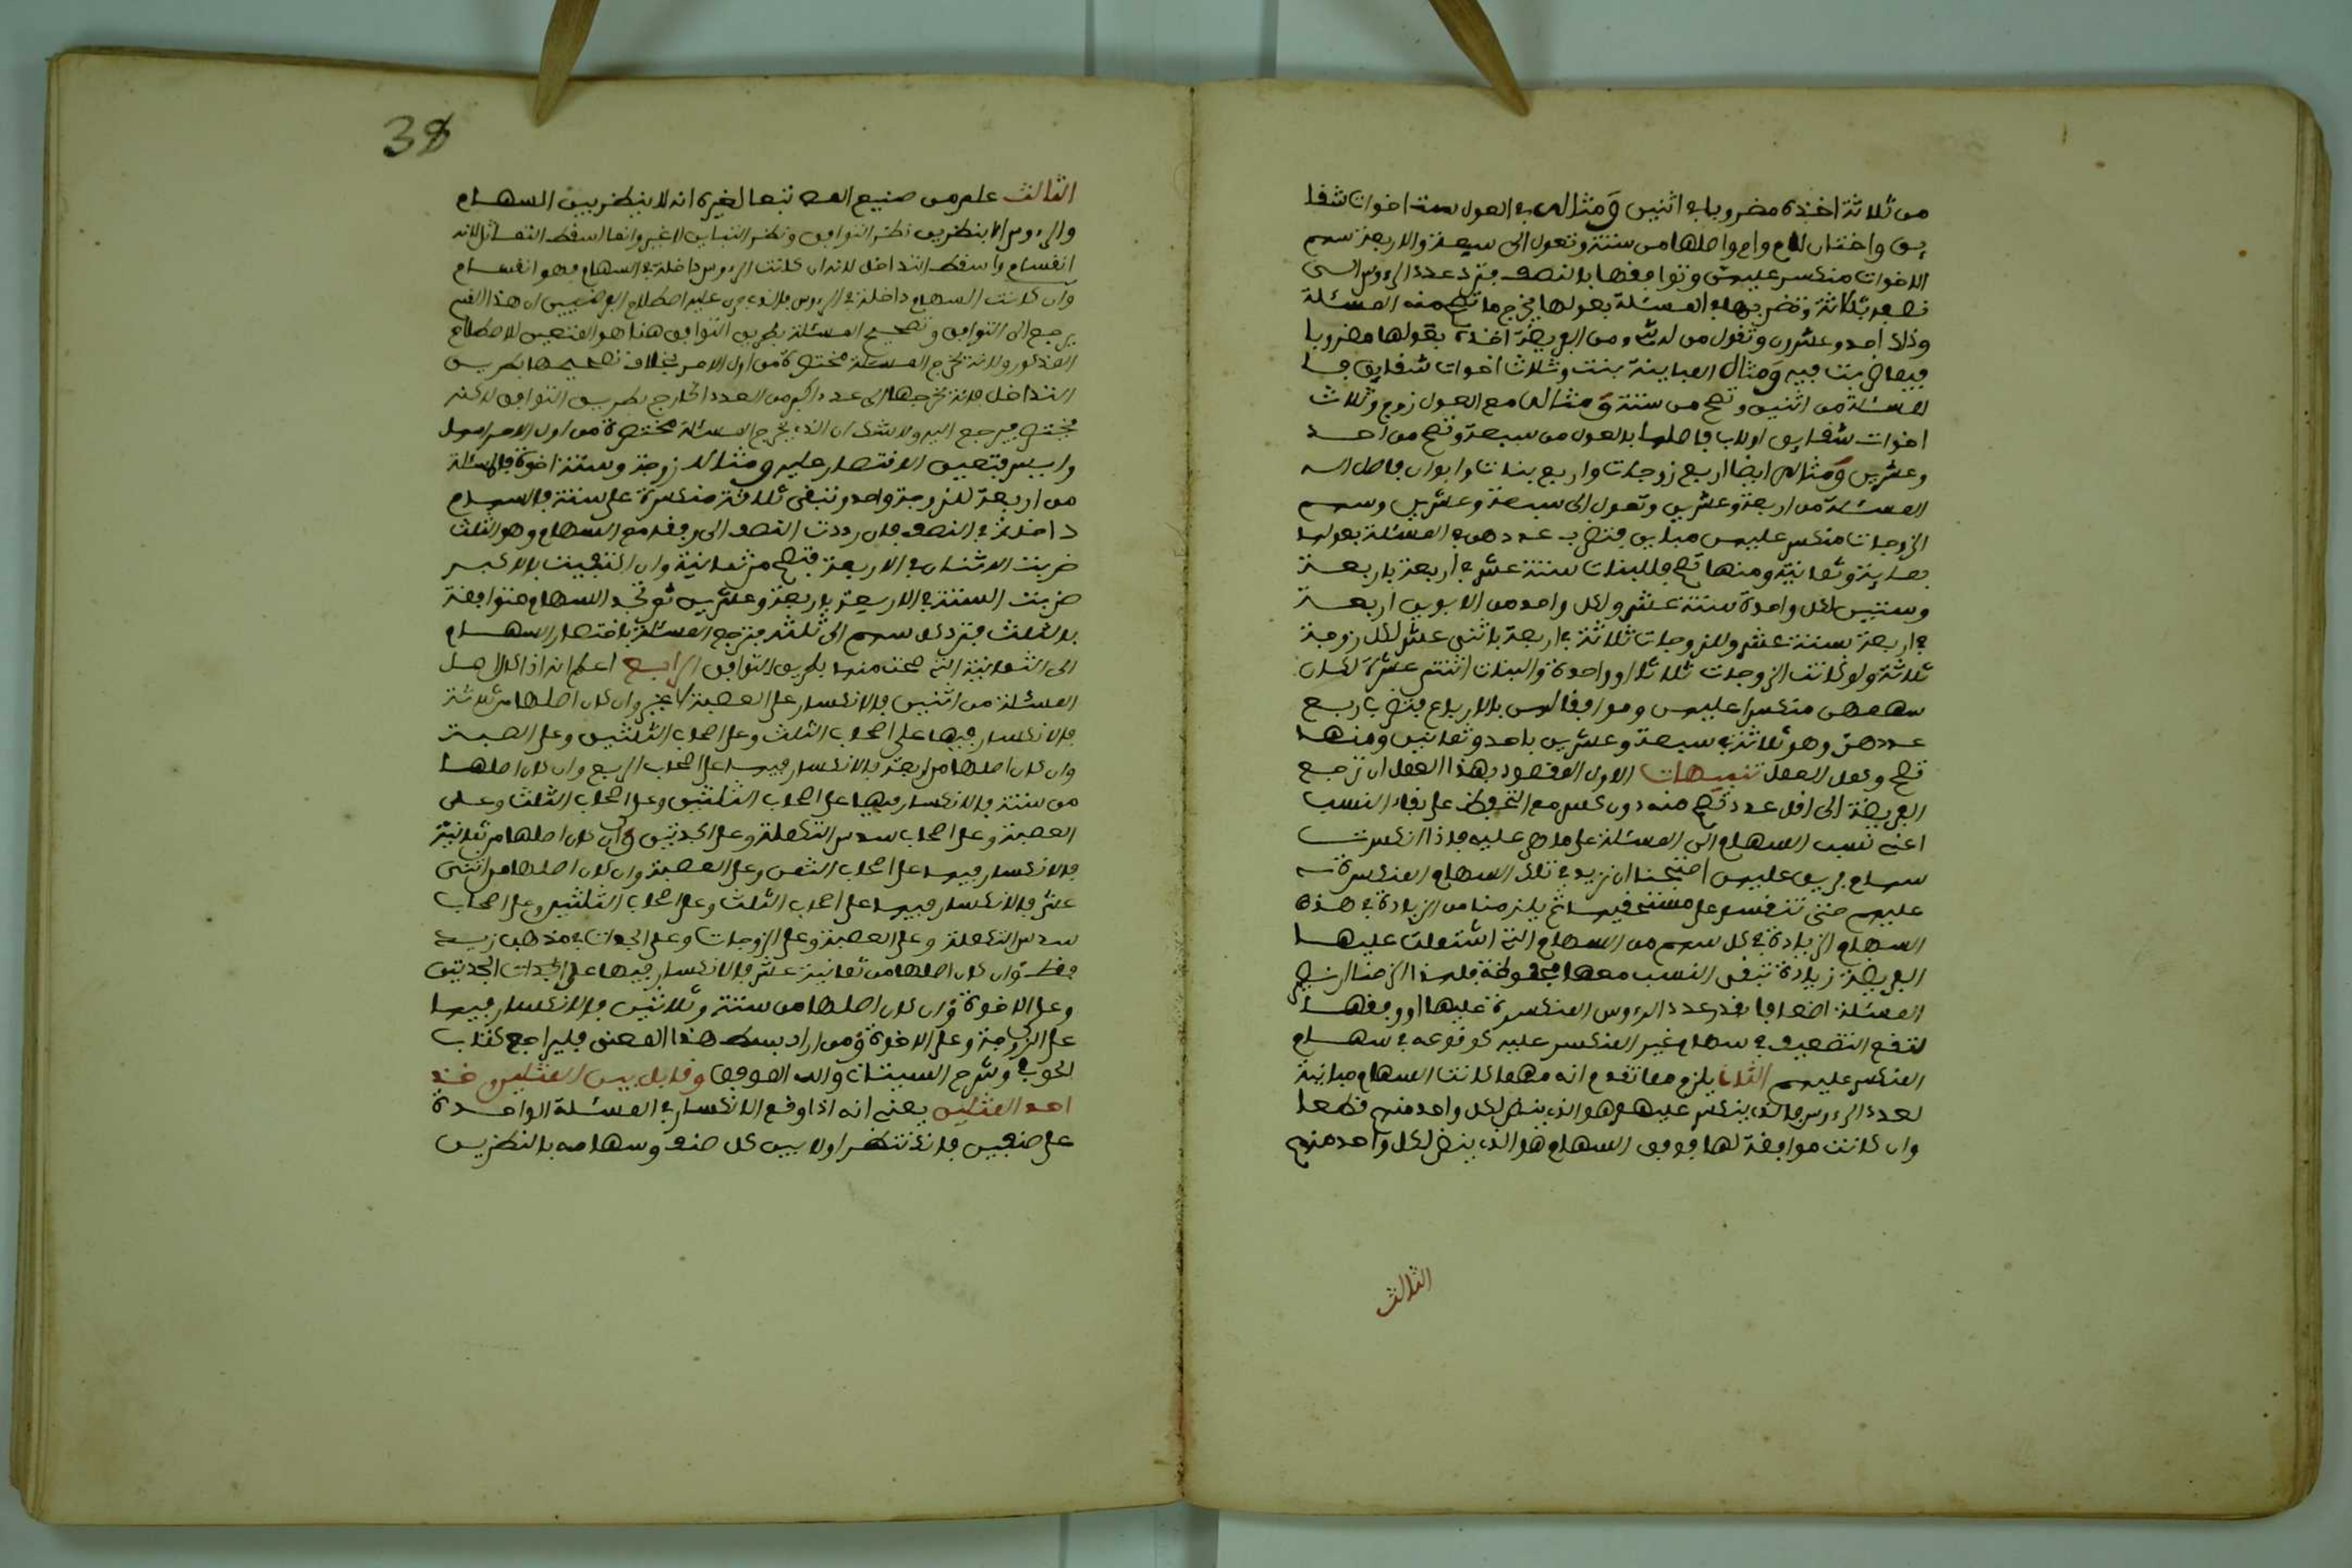 من ثلاثة اخذه مضروبا في اثنين ومثاله في العول ست اخوات شقا
يق واختان لام وام واصلها من ستة وتعول الى سبعة والاربعة سهم
الاخوات منكسر عليهن وتوافقها بالنصف فترد عدد الرءوس الى
نصفه ثلاثة وتضربها في المسئلة بعولها يخرج ما تصح منه المسئلة
وذلك احد وعشرون وتقول من له شيء من الفريضة اخذه بعولها مضروبا
فيما ضربت فيه ومثال المباينة بنت وثلاث اخوات شقايق فا
لمسئلة من اثنين وتصح من ستة ومثاله مع العول زوج وثلاث
اخوات شقايق او لاب فاصلها بالعول من سبعة وتصح من احد
وعشرين ومثاله ايضا اربع زوجات واربع بنات وابوان فاصل
المسئلة من اربعة وعشرين وتعول الى سبعة وعشرين وسهم
الزوجات منكسر عليهن مباين فتضرب عددهن في المسئلة بعولها
بماية وثمانية ومنها تصح فللبنات ستة عشر في اربعة باربعة
وستين لكل واحدة ستة عشر ولكل واحد من الابوين اربعة
في اربعة بستة عشر وللزوجات ثلاثة في اربعة باثني عشر لكل زوجة
ثلاثة ولو كانت الزوجات ثلاثا او واحدة والبنات اثنتي عشرة لكان
سهمهن منكسرا عليهن وموافقا لهن بالارباع فتضرب ربع
عددهن وهو ثلاثة في سبعة وعشرين باحد وثمانين ومنها
تصح وكمل العمل تنبيهات الاول المقصود بهذا العمل ان ترجع
الفريضة الى اقل عدد تصح منه دون كسر مع التحفظ على بقاء النسب
اعني نسب السهام الى المسئلة على ما هي عليه فاذا انكسرت
سهام فريق عليهن احتجنا ان نزيد في تلك السهام المنكسرة
عليهم حتى تنقسم على مستحقيها ثم يلزمنا من الزيادة في هذه
السهام الزيادة في كل سهم من السهام التي اشتملت عليها
الفريضة زيادة تبقى النسب معها محفوظة فلهذا الزمنا ان نضرب
المسئلة اضعافا بقدر عدد الرءوس المنكسرة عليها او وفقها
لتقع التضعيف في سهام غير المنكسر عليه كوقوعه في سهام
المنكسر عليهم الثاني يلزم مما تقدم انه مهما كانت السهام مباينة
لعدد الرءوس فالذي ينكسر عليهم هو الذي ينض لكل واحد منهم قطعا
وان كانت موافقة لها فوفق السهام هو الذي ينض لكل واحد منهم
الثالث
38
الثالث علم من صنيع المص تبعا لغيره انه لا ينظر بين السهام
والرءوس الا بنظرين نظر التوافق ونظر التباين لا غير وانما اسقط التماثل لانه
انقسام واسقط التداخل لانه ان كانت الرءوس داخلة في السهام فهو انقسام
وان كانت السهام داخلة في الرءوس فالذي جرى عليه اصطلاح الفرضيين ان هذا القسم
يرجع الى التوافق وتصحيح المسئلة بطريق التوافق هنا هو المتعين للاصطلاح
المذكور ولانه يخرج المسئلة مختصرة من اول الامر بخلاف تصحيحها بطريق
التداخل فانه يخرجها الى عدد اكبر من العدد الخارج بطريق التوافق لكنه
يختصر فيرجع اليه ولا شك ان الذي يخرج المسئلة مختصرة من اول الامر اسهل
وايسر فتعين الاقتصار عليه ومثاله زوجة وستة اخوة فالمسئلة
من اربعة للزوجة واحد وتبقى ثلاثة منكسرة على ستة فالسهام
داخلة في النصف فان رددت النصف الى وفقه مع السهام وهو الثلث
ضربت الاثنان في الاربعة فتصح من ثمانية وان اكتفيت بالاكبر
ضربت الستة في الاربعة باربعة وعشرين ثم تجد السهام متوافقة
بالثلث فترد كل سهم الى ثلثه فترجع المسئلة باختصار السهام
الى الثمانية التي صحت منها بطريق التوافق الرابع اعلم انه اذا كان اصل
المسئلة من اثنين فالانكسار على العصبة لا غير وان كان اصلها من ثلاثة
فالانكسار فيها على اصحاب الثلث وعلى اصحاب الثلثين وعلى العصبة
وان كان اصلها من اربعة فالانكسار فيها على اصحاب الربع وان كان اصلها
من ستة فالانكسار فيها على اصحاب الثلثين وعلى اصحاب الثلث وعلى
العصبة وعلى اصحاب سدس التكملة وعلى الجدتين وان كان اصلها من ثمانية
فالانكسار فيها على اصحاب الثمن وعلى العصبة وان كان اصلها من اثني
عشر فالانكسار فيها على اصحاب الثلث وعلى اصحاب الثلثين وعلى اصحاب
سدس التكملة وعلى العصبة وعلى الزوجات وعلى الجدات في مذهب زيد
فقط وان كان اصلها من ثمانية عشر فالانكسار فيها على الجدات الجدتين
وعلى الاخوة وان كان اصلها من ستة وثلاثين فالانكسار فيها
على الزوجة وعلى الاخوة ومن اراد بسط هذا المعنى فليراجع كتاب
الحوفي وشرح السبتان والله الموفق وقابل بين المثلين وخذ
احد المثلين يعني انه اذا وقع الانكسار في المسئلة الواحدة
على صنفين فانك تنظر اولا بين كل صنف وسهامه بالنظرين